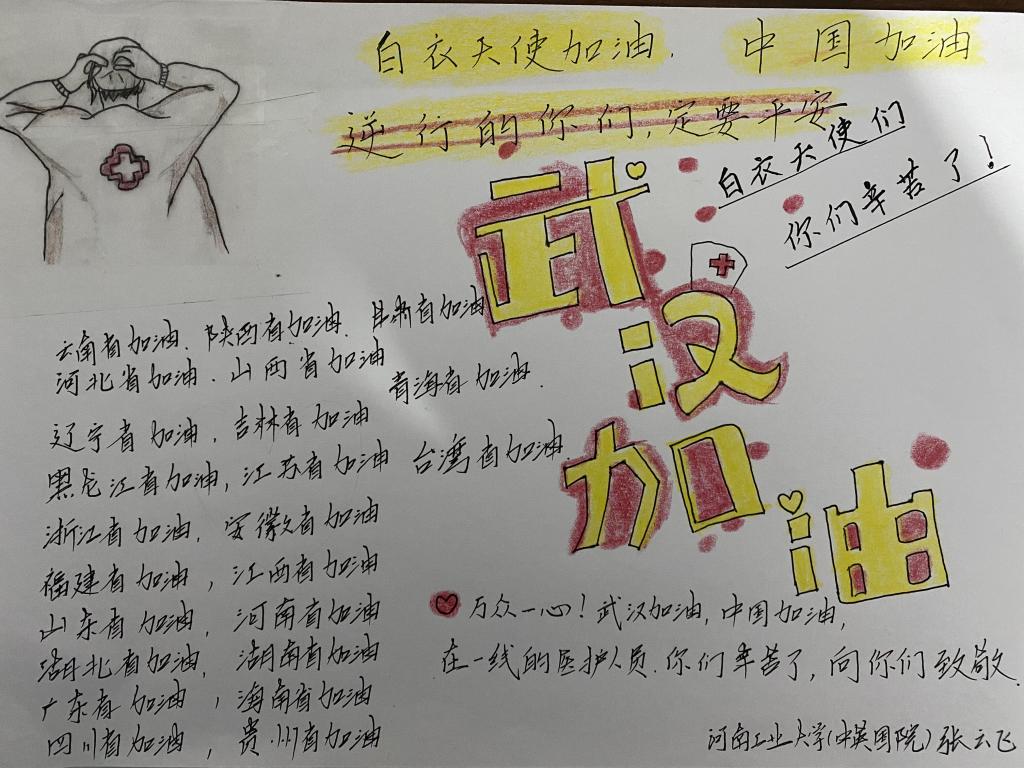 白衣天使加油. 中国加油
逆行的你们,定要平安
白衣天使们
你们辛苦了!
武
汉
加
油
云南省加油. 陕西省加油. 甘肃省加油
河北省加油. 山西省加油
青海省加油.
辽宁省加油, 吉林省加油
黑龙江省加油, 江苏省加油 台湾省加油.
浙江省加油, 安徽省加油
福建省加油, 江西省加油
山东省加油, 河南省加油
湖北省加油, 湖南省加油
广东省加油, 海南省加油
四川省加油, 贵州省加油
万众一心! 武汉加油, 中国加油,
在一线的医护人员.你们辛苦了, 向你们致敬.
河南工业大学(中英国院) 张云飞